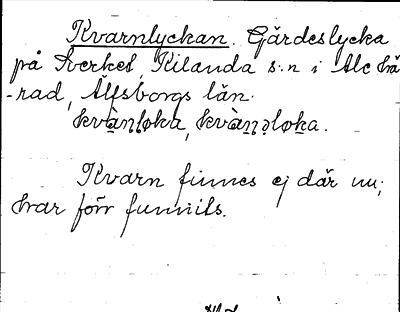 Kvarnlyckan. Gärdeslycka
på Sverket, Kilanda s:n i Ale hä
-rad, Älfsborgs län.
kvànløka, kvàṇəløka.
Kvarn finnes ej där nu;
har förr funnits.